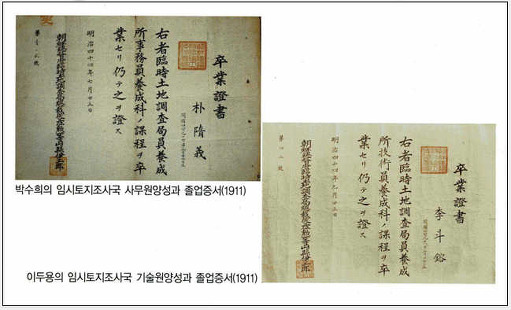 卒業證書
朴隋義
右者臨時土地調査局員養成
所事務員養成科ノ課程ヲ卒
業セリ仍テ之ヲ證ス
明治四十四年七月
朝鮮總督府臨時土地調査局
박수희의 임시토지조사국 사무원양성과 졸업증서(1911)
卒業證書
李斗鎔
右者臨時土地調査局員養成
所技術員養成科ノ課程ヲ卒
業セリ仍テ之ヲ證ス
明治四十四年九月
朝鮮總督府臨時土地調査局
이두용의 임시토지조사국 기술원양성과 졸업증서(1911)